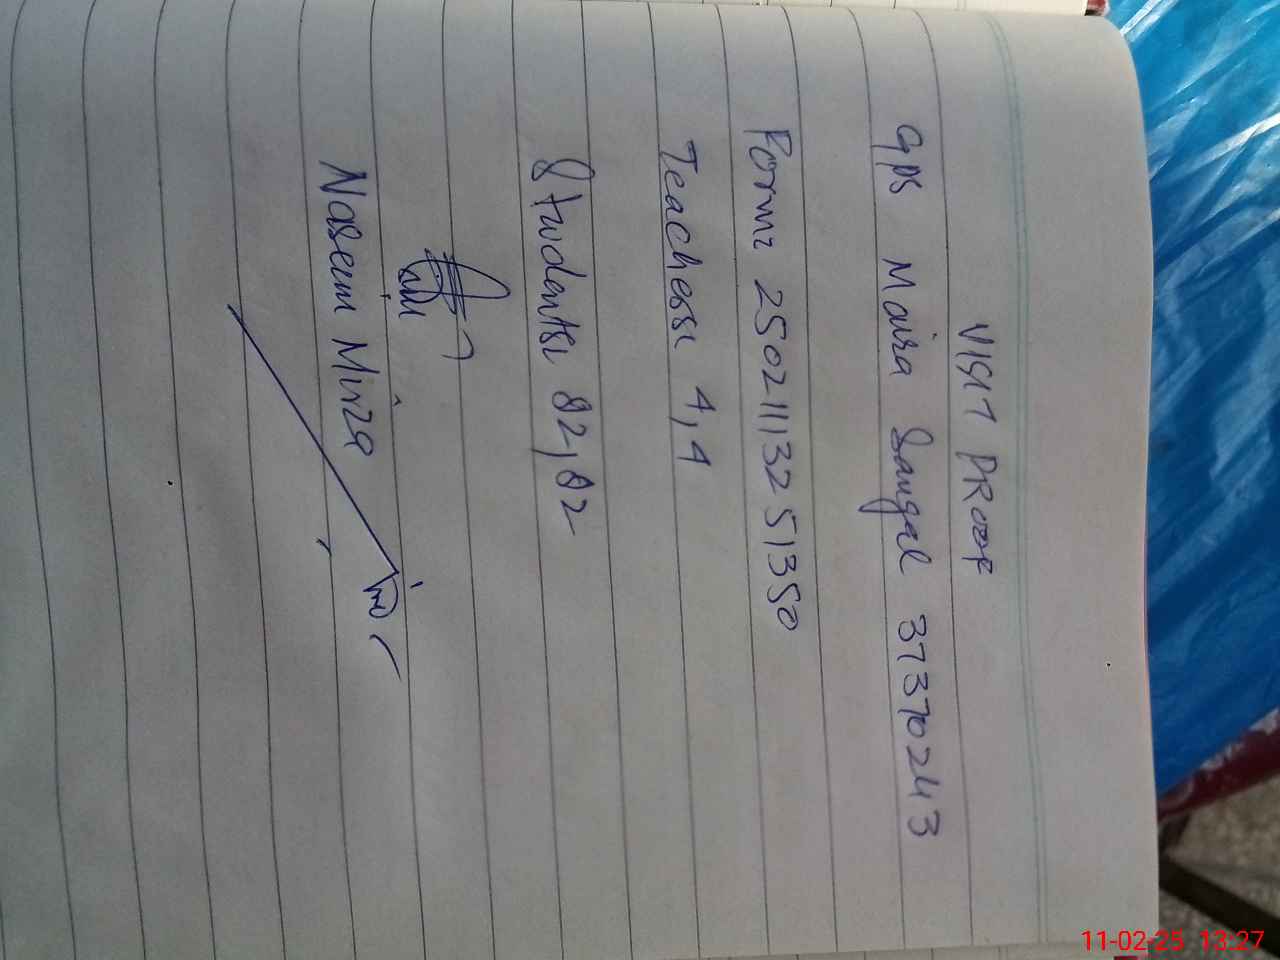 VISIT PROOF
GPS Maira Sangal 37370243
Form: 2502111325 1350
Teachers: 4,4
Students: 82,82
Naseem Mirza
11-02-25 13:27